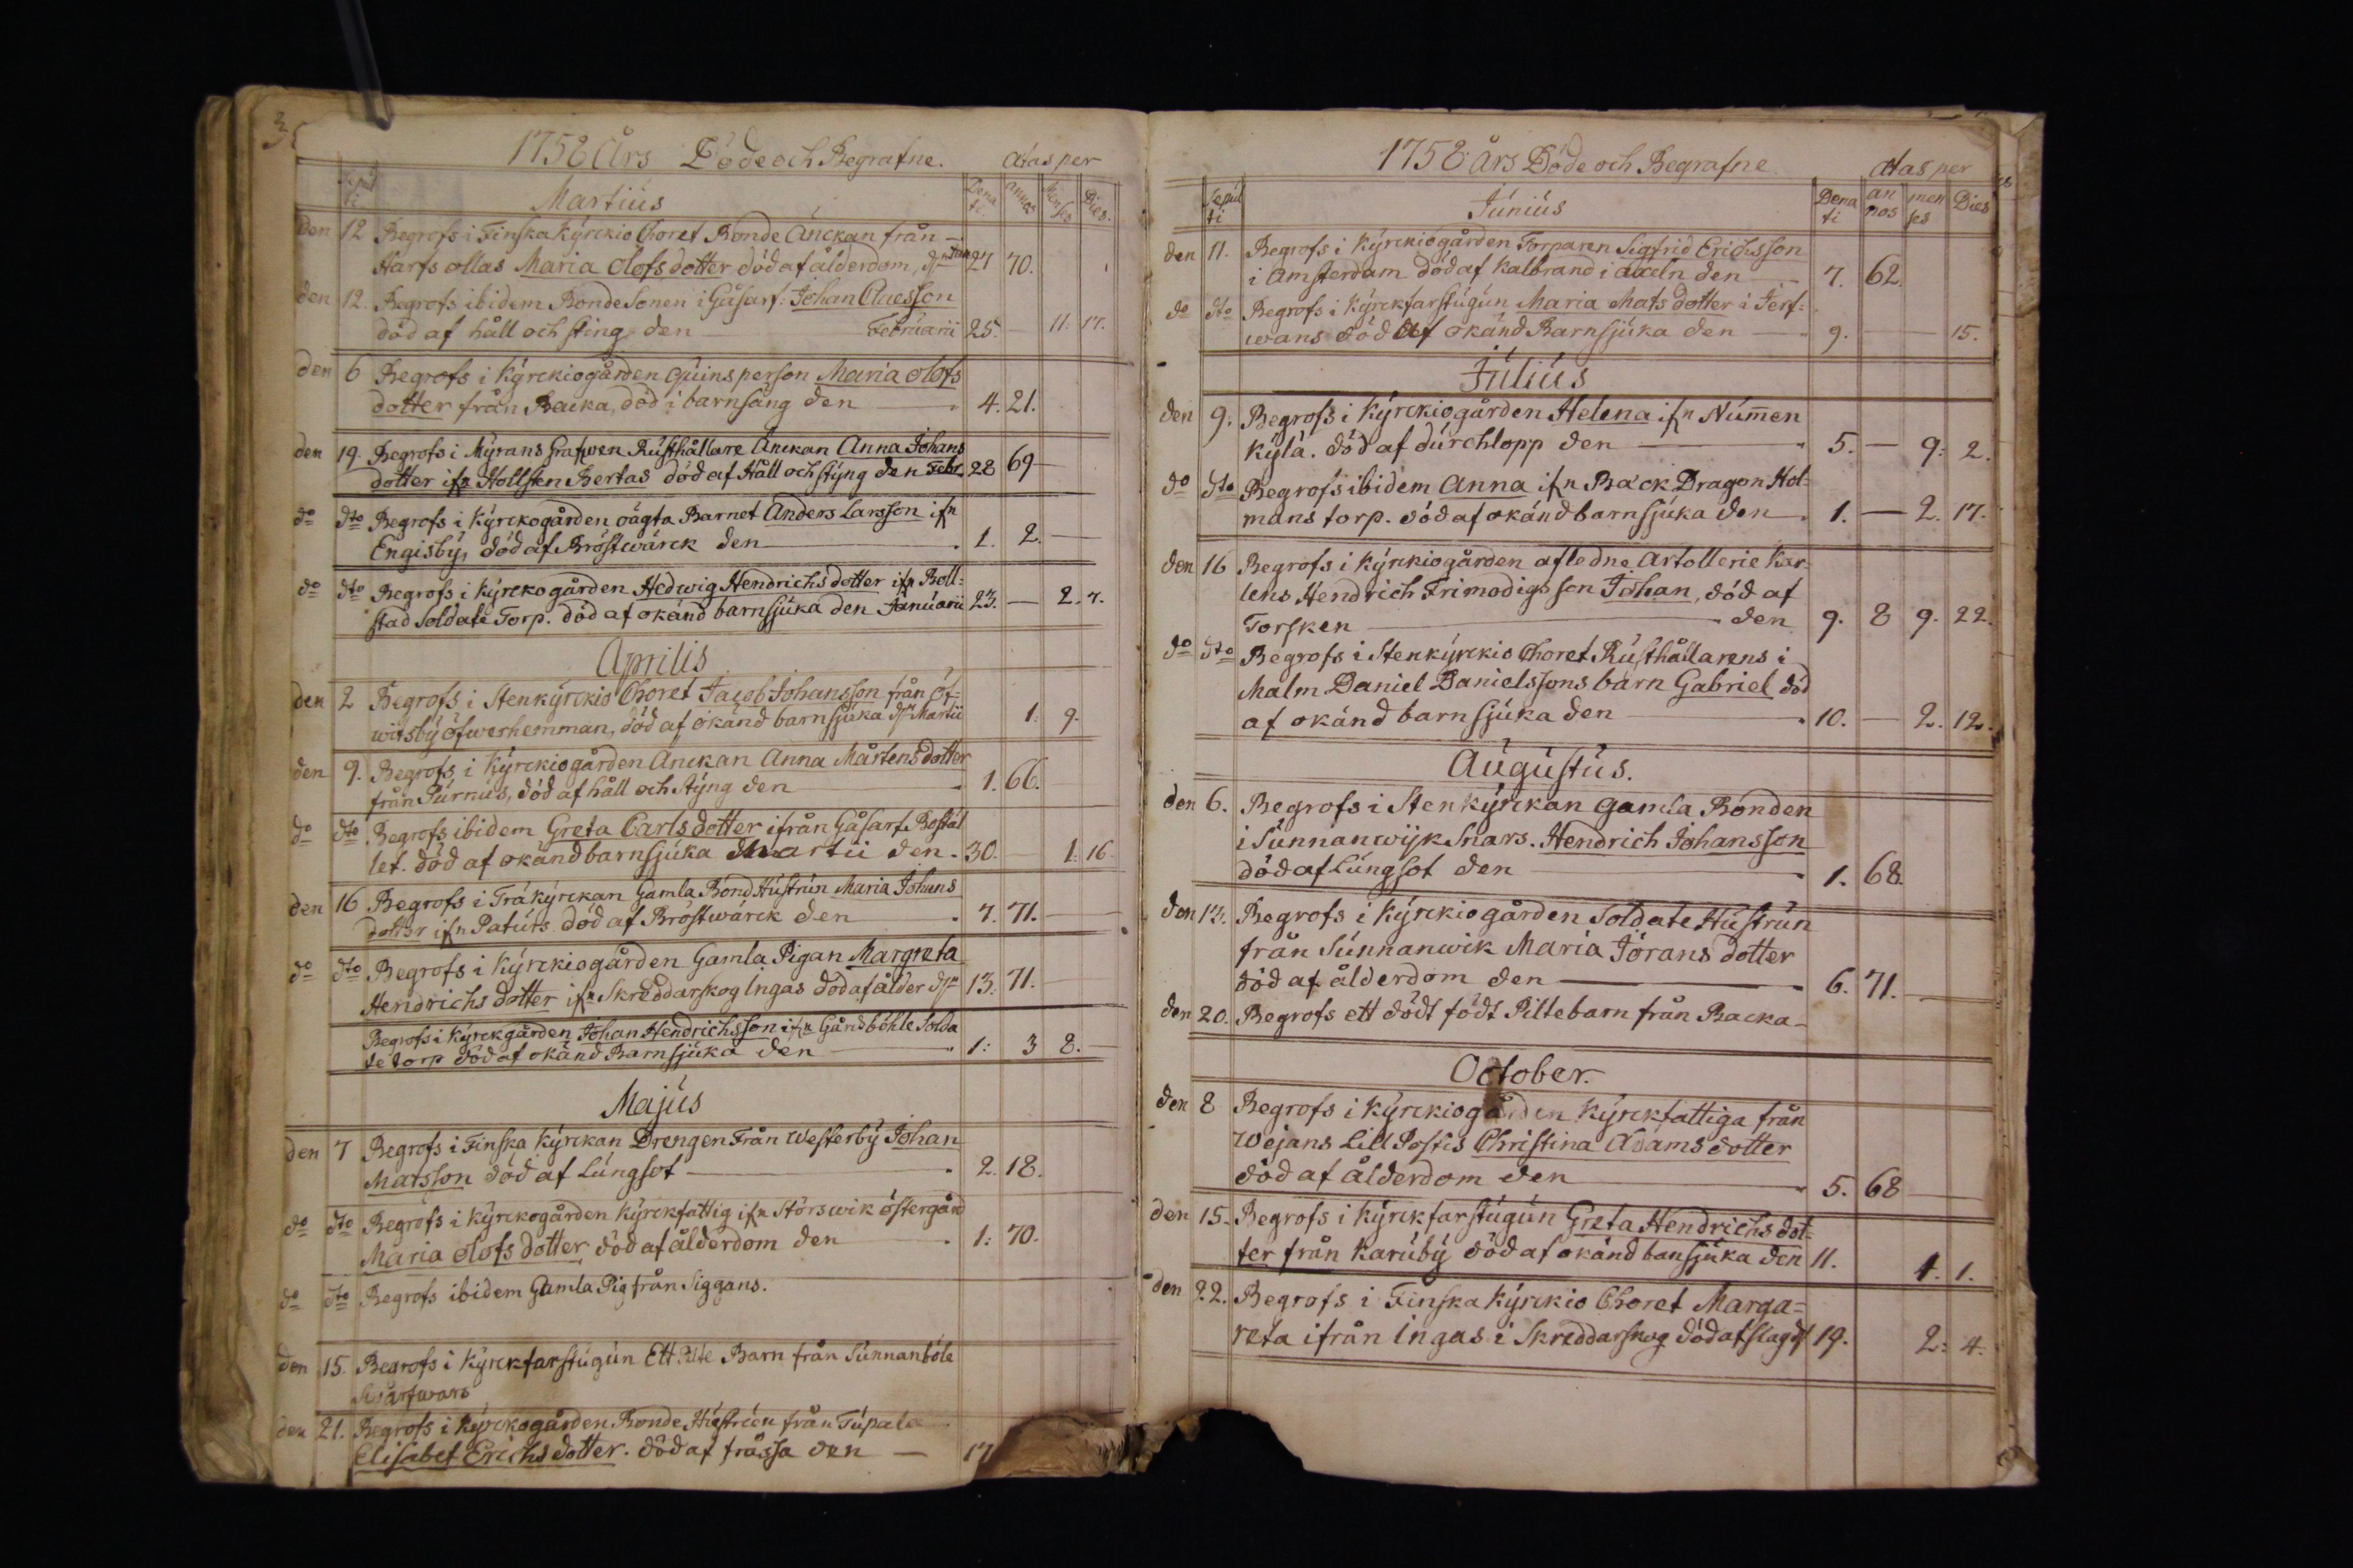 1758 Års Döde och Begrafne. ætas per
Sepul
ti Martius Dena
ti annos Men
ses Dies.
Den 12 Begrofs i Finska Kyrckio Choret Bonde Änckan från
Harfs ollas Maria Olofs dotter död af ålderdom, dn Jan 27 70.
den 12. Begrofs ibidem Bonde Sonen i Gåsarf: Johan Claesson
död af håll och sting den Februarii 25. — 11. 17.
den 6 Begrofs i Kyrckiogården Quinsperson Maria Olofs
dotter från Backa, död i barnsäng den 4. 21.
den 19. Begrofs i Myrans Grafwen Rusthållare Änckan Anna Johans
dotter ifn Hollsten Bertas död af Håll och styng den Febr. 28 69 —
do dto Begrofs i Kyrckogården oägta Barnet Anders Larsson ifn
Engisby, död af Bröstwärck den 1. 2. —
do dto Begrofs i Kyrckogården Hedwig Hendrichs dotter ifn Boll=
stad Soldate Torp. död af okänd barnsjuka den Januarii 23. — 2. 7.
Aprilis
den 2 Begrofs i Stenkyrckio Choret Jacob Johansson från Öf=
witsby öfwerhemman, död af okänd barnsjuka dn Martii 1. 9.
den 9. Begrofs i Kyrckiogården Änckan Anna Mårtens dotter
från Purnus, död af håll och styng den 1. 66.
do dto Begrofs ibidem Greta Carls dotter ifrån Gåsarf. Bostäl
let. död af okänd barnsjuka Martii den. 30. — 1. 16.
den 16 Begrofs i Träkyrckan Gamla Bond Hustrun Maria Johans
dotter ifn Patuts död af Bröstwärck den 7. 71. —
do dto Begrofs i Kyrckiogården Gamla Pigan Margreta
Hendrichs dotter ifn Skreddarskog Ingas död af ålder dn 13. 71. —
Begrofs i Kyrckgården Johan Hendrichsson ifn Gårdsböhle Solda
te torp död af okänd Barnsjuka den 1: 3 8. —
Majus
den 7 Begrofs i Finska Kyrckan Drengen Från Westerby Johan
Matsson död af Lungsot 2. 18.
do dto Begrofs i Kyrckogården Kyrckfattig ifn Störswik östergård
Maria Olofs dotter död af ålderdom den 1: 70.
do dto Begrofs ibidem Gamla Pig från Siggans.
den 15. Begrofs i Kyrckfarstugun Ett Pilte Barn från Sunnanböle
den 21. Begrofs i Kyrckogården Bonde Hustrun från Tupala
Elisabet Erichs dotter. död af frässa den — 17
1758 Års Döde och Begrafne ætas per
Sepul
ti Junius Dena
ti an
nos men
ses Dies
den 11. Begrofs i Kyrckiogården Torparen Sigfrid Erichsson
i Amsterdam död af Kalbrand i axeln den 7. 62.
do dto Begrofs i Kyrckfarstugun Maria Mats dotter i Jerf=
wans död af okänd Barnsjuka den 9. — — 15.
Julius
den 9. Begrofs i Kyrckiogården Helena ifn Num̅en
kylä. död af durchlopp den 5. — 9. 2.
do dto Begrofs ibidem Anna ifn Back Dragon Hol=
mans torp. död af okänd barnsjuka den 1. — 2. 17.
den 16 Begrofs i Kyrckiogården afledne Artollerie Kar=
lens Hendrich Frimodigs son Johan, död af
Torsken den 9. 8 9. 22.
do dto Begrofs i Stenkyrckio Choret Rusthållarens i
Malm Daniel Danielssons barn Gabriel död
af okänd barnsjuka den 10. — 2. 12.
Augustus.
den 6. Begrofs i Stenkyrckan gamla Bonden
i Sunnanwijk Snars. Hendrich Johansson
död af Lungsot den 1. 68.
den 13. Begrofs i Kyrckiogården Soldate Hustrun
från Sunnanwik Maria Jörans dotter
död af ålderdom den 6. 71. —
den 20. Begrofs ett dödt födt Piltebarn från Backa-
October.
den 8 Begrofs i Kyrckiogården Kyrckfattiga från
Wejans Lill Postis Christina Adams dotter
död af ålderdom den 5. 68 —
den 15. Begrofs i Kyrckfarstugun Greta Hendrichs dot=
ter från Karuby död af okänd bansjuka den 11. 4. 1.
den 22. Begrofs i Finska Kyrckio Choret Marga=
reta ifrån Ingas i Skreddarskog död af slag dn 19. 2: 4.